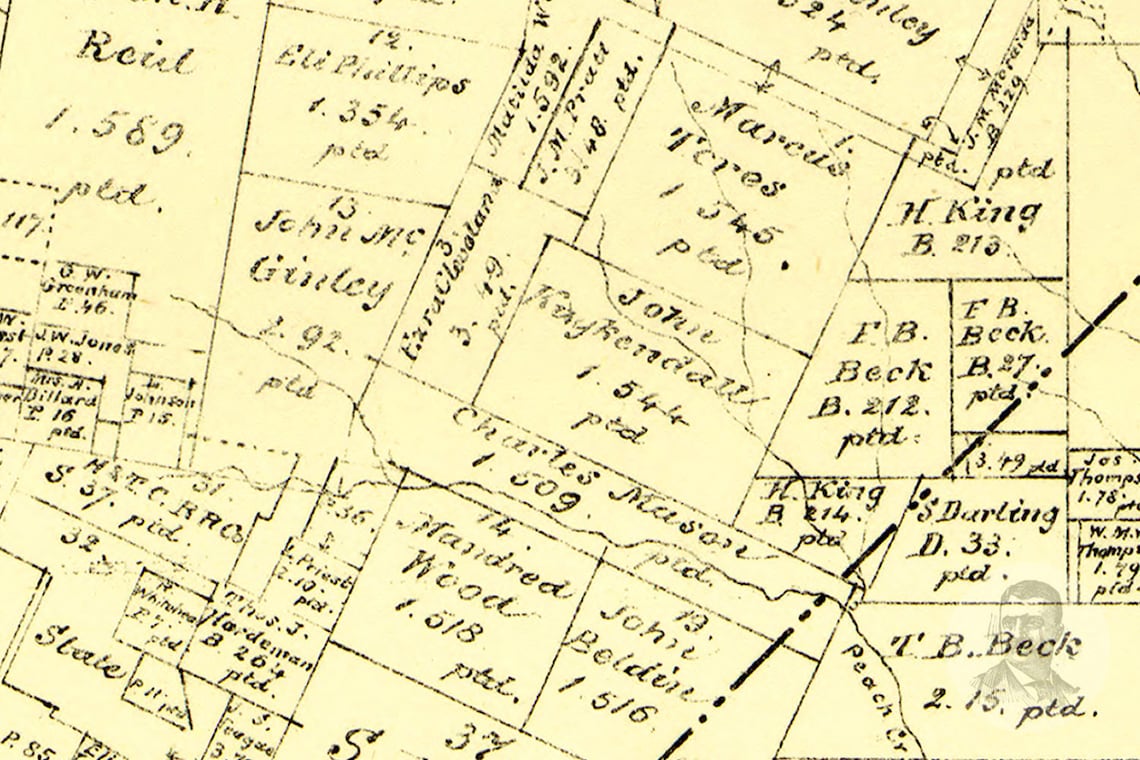 Reid
1.589.
ptd.
12.
Eli Phillips
1.354
ptd
13.
John Mc
Ginley
1.92.
ptd
Matilda W
1.592.
J. M. Pratt
3.48. ptd.
3
3.49.
ptd.
524
ptd.
Marcus
1.
Teres
1 545
ptd
John
Kuykendall
1.544
ptd
Charles Mason
1.509.
ptd.
J. M. Moraida
B 129
ptd.
ptd
H. King
B. 213.
F B.
Beck
B. 212.
ptd.
F B.
Beck
B. 27.
ptd.
3.49 ptd
H. King
B 214.
ptd
S Darling
D. 33.
ptd.
Jos
Thomps
1.78.
ptd
W. M.
Thomp
1.79
ptd
T B. Beck
2. 15. ptd.
Peach Cr
117.
G. W.
Greenham
P. 46.
J. W. Jones
P. 28.
Mrs. A.
Billard
P. 16
ptd.
L.
Johnson
P 15.
31
H & T. C. R R Co
S. 37. ptd.
32
P. 36.
J. Priest
2.19.
ptd.
14.
Mandred
Wood
1.518
ptd.
13.
John
Beldin
1.516
R.
P. 7.
ptd
Thos. J.
Hardeman
B 204
ptd.
State
P. 11. ptd
J. S.
Teague
P. 85
Eli
S
37